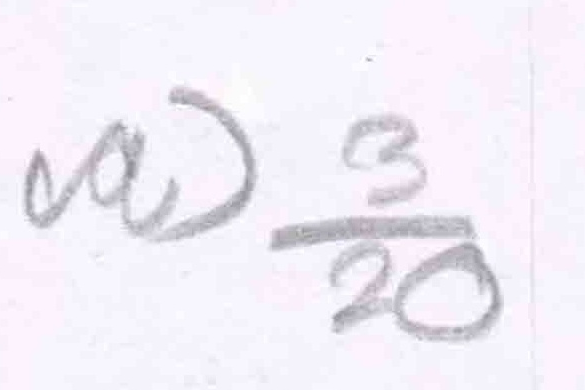 a) 3/20